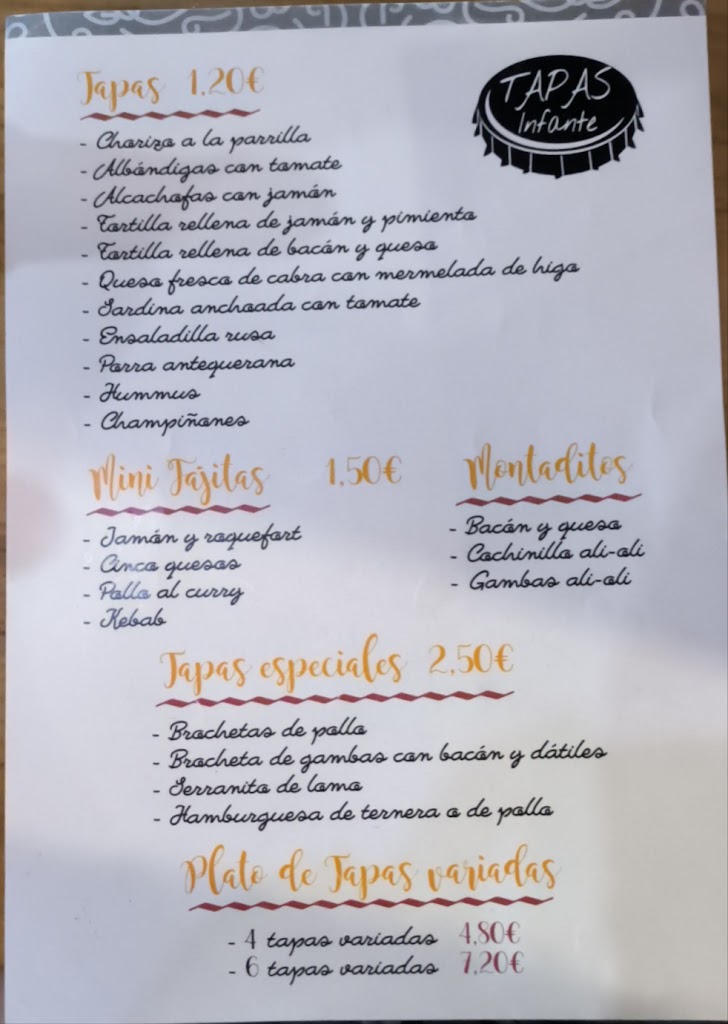 Tapas 1,20€
TAPAS
Infante
- Chorizo a la parrilla
- Albóndigas con tomate
- Alcachofas con jamón
- Tortilla rellena de jamón y pimiento
- Tortilla rellena de bacón y queso
- Queso fresco de cabra con mermelada de higo
- Sardina anchoada con tomate
- Ensaladilla rusa
- Porra antequerana
- Hummus
- Champiñones
Mini Fajitas 1,50€
- Jamón y roquefort
- Cinco quesos
- Pollo al curry
- Kebab
Montaditos
- Bacón y queso
- Cochinillo ali-oli
- Gambas ali-oli
Tapas especiales 2,50€
- Brochetas de pollo
- Brocheta de gambas con bacón y dátiles
- Serranito de lomo
- Hamburguesa de ternera o de pollo
Plato de Tapas variadas
- 4 tapas variadas 4,80€
- 6 tapas variadas 7,20€